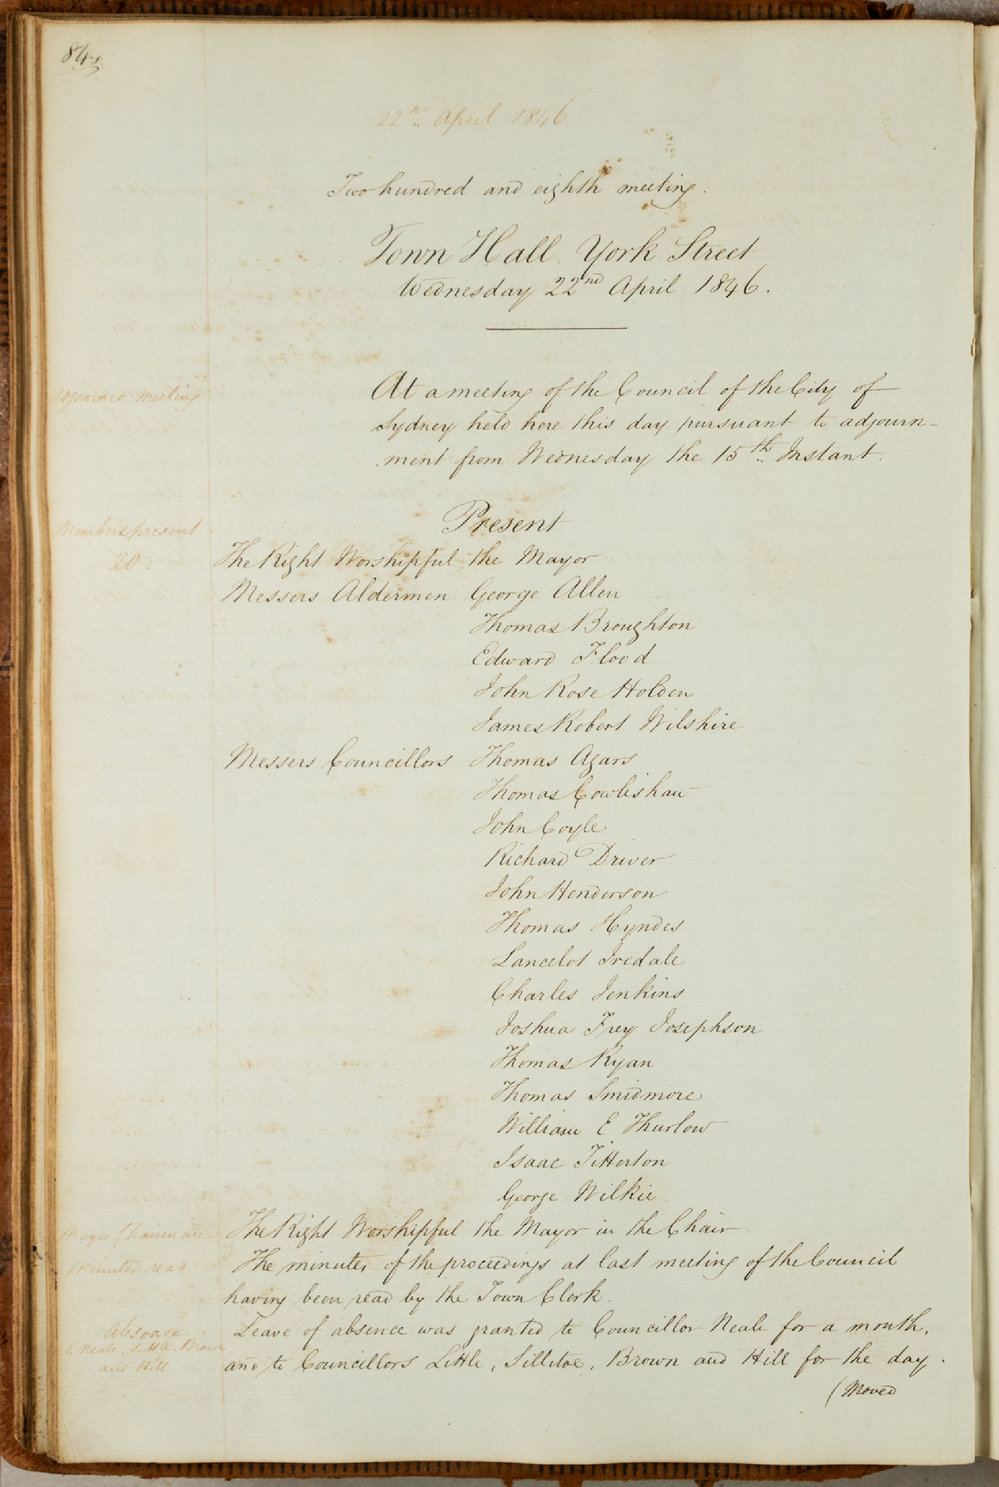 84.
22nd April 1846
Two hundred and eighth meeting.
Town Hall York Street
Wednesday 22nd April 1846.
Adjourned meeting
At a meeting of the Council of the City of
Sydney held here this day pursuant to adjourn-
ment from Wednesday the 15th Instant.
Members present
20
Present
The Right Worshipful the Mayor
Messers Aldermen George Allen
Thomas Broughton
Edward Flood
John Rose Holden
James Robert Wilshire
Messers Councillors Thomas Agars
Thomas Cowlishaw
John Coyle
Richard Driver
John Henderson
Thomas Hyndes
Lancelot Iredale
Charles Jenkins
Joshua Frey Josephson
Thomas Ryan
Thomas Smidmore
William E Thurlow
Isaac Titterton
George Wilkie
Mayor Chairman
The Right Worshipful the Mayor in the Chair
Minutes read
The minutes of the proceedings at last meeting of the Council
having been read by the Town Clerk.
Absence
Neale, Little, Brown
and Hill
Leave of absence was granted to Councillor Neale for a month,
and to Councillors Little, Sillitoe, Brown and Hill for the day.
(Moved